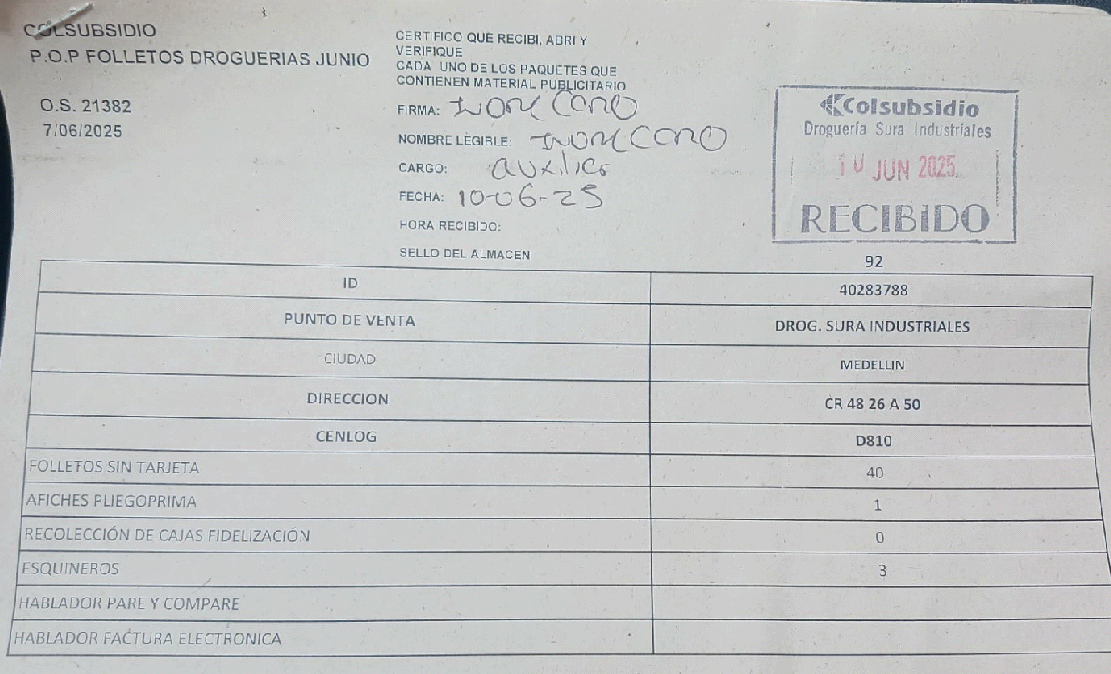 COLSUBSIDIO
P.O.P FOLLETOS DROGUERIAS JUNIO
O.S. 21382
7/06/2025
CERTIFICO QUE RECIBI, ABRI Y
VERIFIQUE
CADA UNO DE LOS PAQUETES QUE
CONTIENEN MATERIAL PUBLICITARIO
FIRMA:
NOMBRE LEGIBLE:
CARGO:
FECHA: 10-06-25
HORA RECIBIDO:
SELLO DEL ALMACEN
Colsubsidio
Droguería Sura Industriales
10 JUN 2025
RECIBIDO
92
ID 40283788
PUNTO DE VENTA DROG. SURA INDUSTRIALES
CIUDAD MEDELLIN
DIRECCION CR 48 26 A 50
CENLOG D810
FOLLETOS SIN TARJETA 40
AFICHES PLIEGOPRIMA 1
RECOLECCIÓN DE CAJAS FIDELIZACIÓN 0
ESQUINEROS 3
HABLADOR PARE Y COMPARE
HABLADOR FACTURA ELECTRONICA